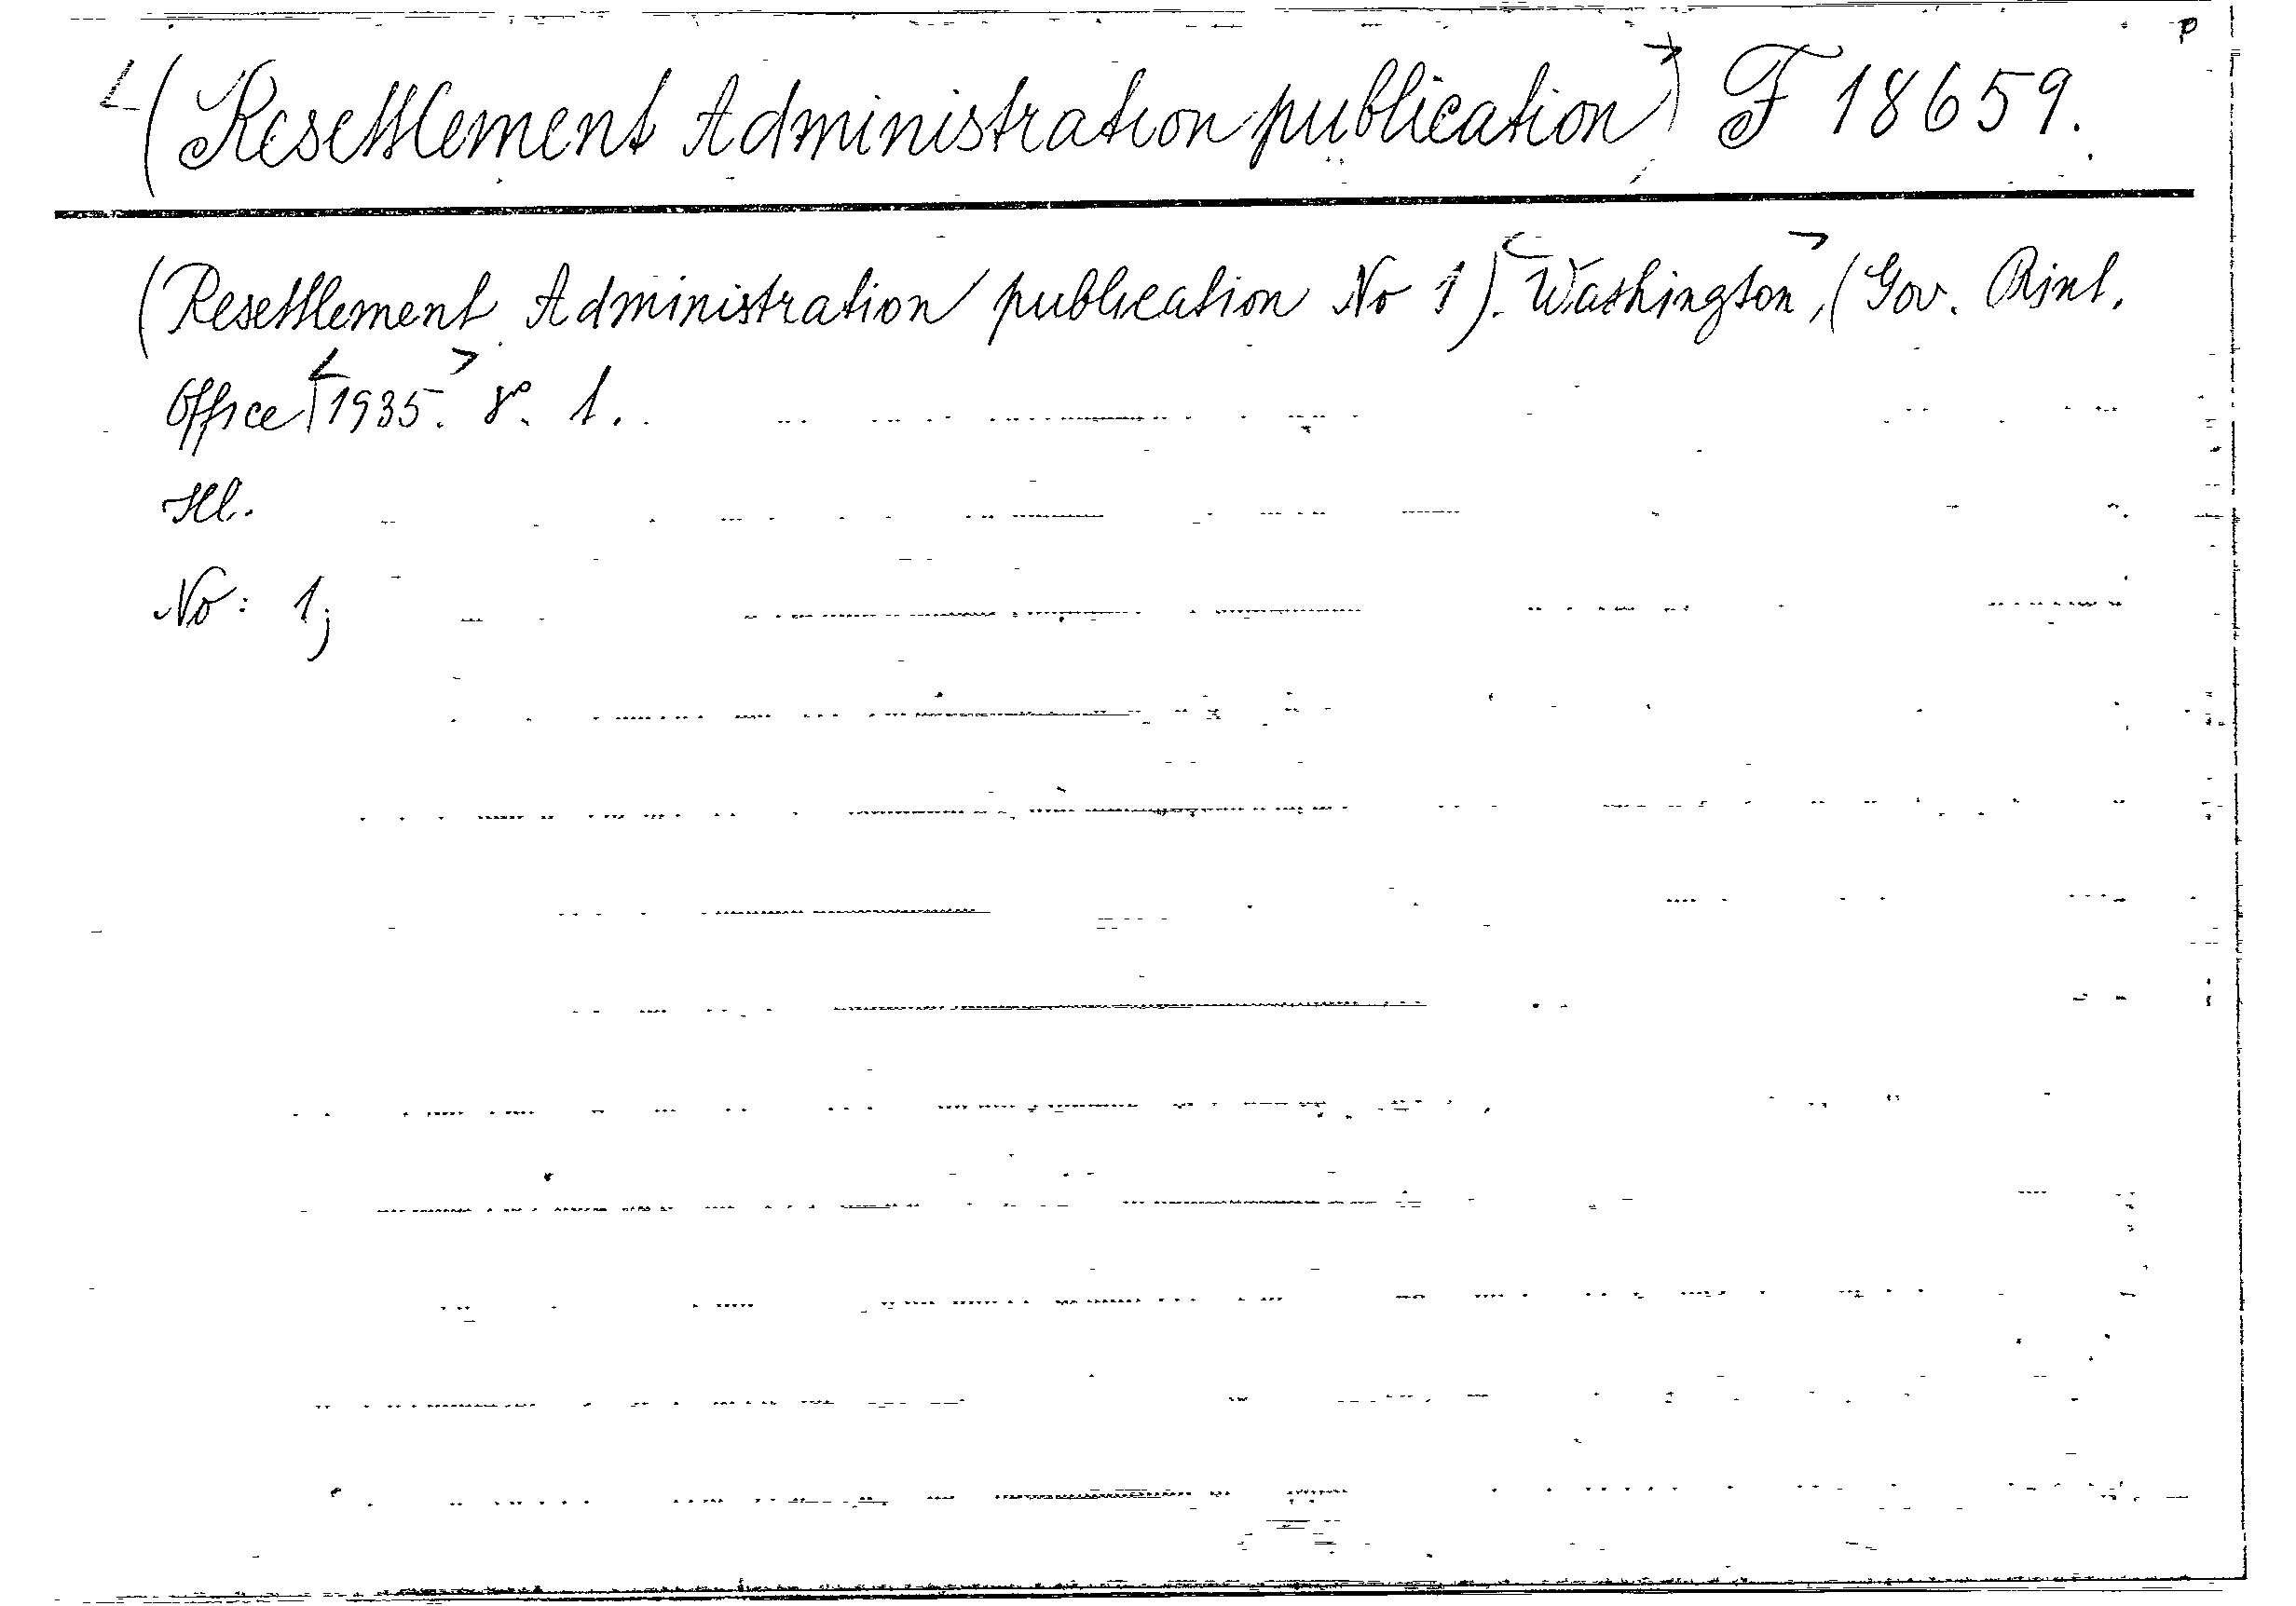 p
<(Resettlement Administration publication>) F 18659.
(Resettlement Administration publication No 1). <Washington>, (Gov. Print.
Office) <1935.> 8°. 1.
Ill.
No: 1;